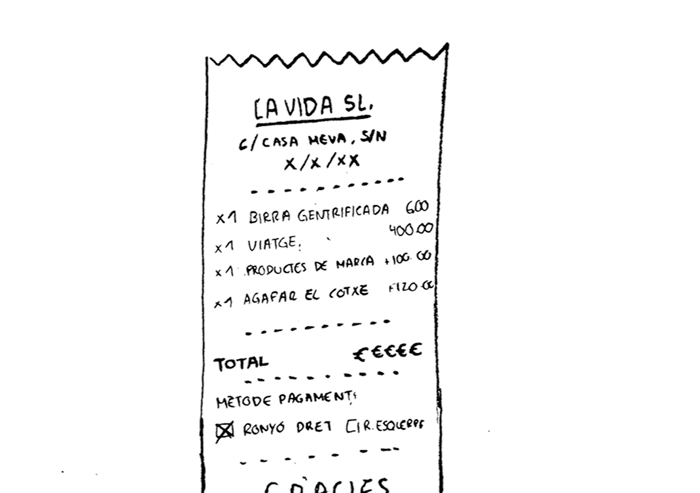 LA VIDA SL.
C/ CASA MEVA, S/N
X/X/XX
x1 BIRRA GENTRIFICADA 6.00
x1 VIATGE. 400.00
x1 PRODUCTES DE MARCA +100.00
x1 AGAFAR EL COTXE +120.00
TOTAL €€€€€
METODE PAGAMENT:
☒ RONYÓ DRET ☐ R. ESQUERRE
GRÀCIES